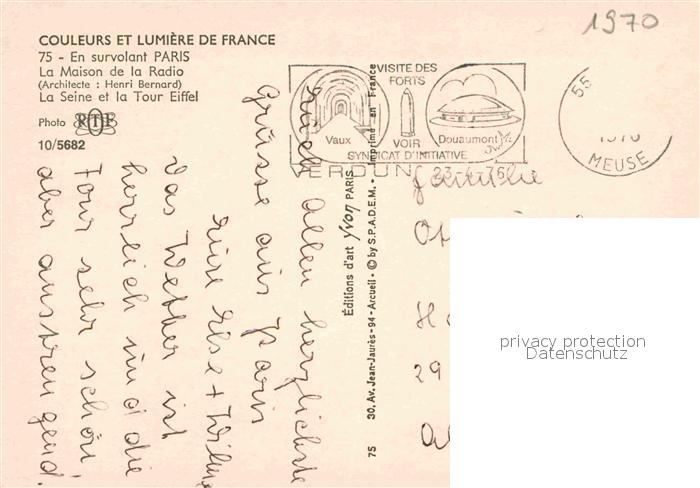 1970
COULEURS ET LUMIÈRE DE FRANCE
75 - En survolant PARIS
La Maison de la Radio
(Architecte : Henri Bernard)
La Seine et la Tour Eiffel
Photo RTF
10/5682
VISITE DES
FORTS
Vaux
VOIR
Douaumont
SYNDICAT D'INITIATIVE
VERDUN
55
MEUSE
Éditions d'art yvon PARIS
75 30, Av. Jean-Jaurès - 94 - Arcueil - © by S.P.A.D.E.M. - Imprimé en France
Euch allen herzlichste
Grüsse aus Paris
Eure Else + Wilm
Das Wetter ist
herrlich und die
Tour sehr schön
aber anstrengend!
Familie
29
privacy protection
Datenschutz